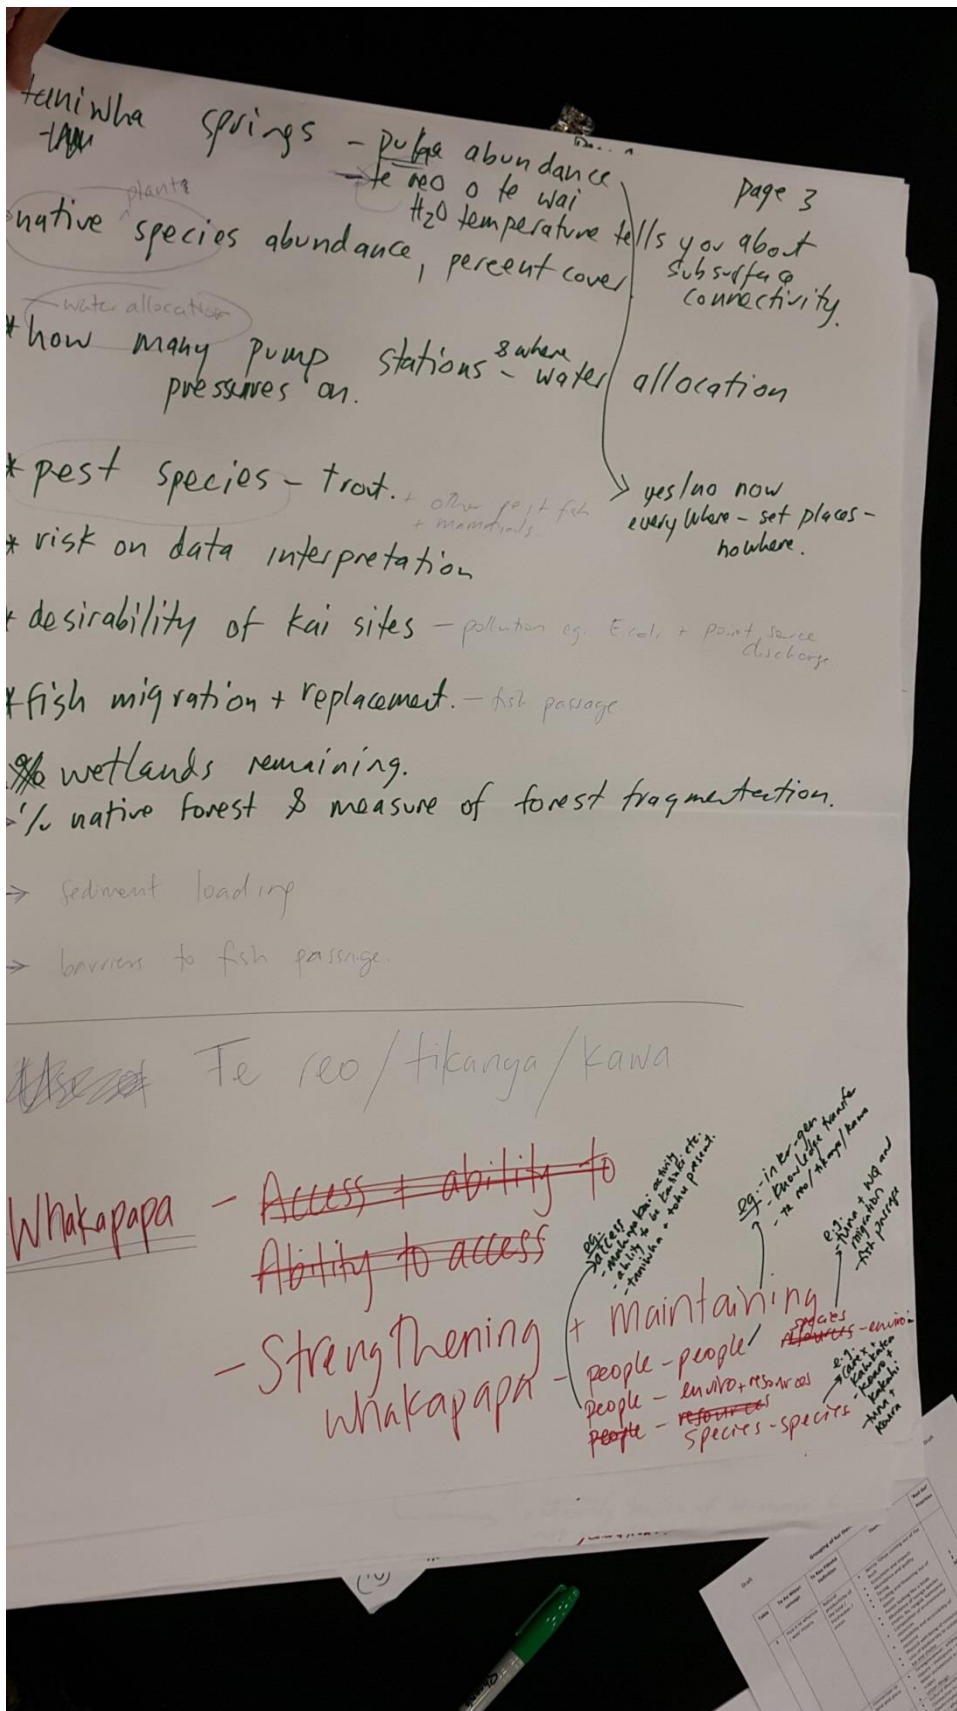 taniwha springs - puha abundance
- te reo o te wai
page 3
H2O temperature tells you about
subsurface
connectivity.
plants
native species abundance, percent cover
water allocation
* how many pump stations & where - water allocation
pressures on.
* pest species - trout. + other pest fish
+ mammals.
yes/no now
everywhere - set places -
nowhere.
* risk on data interpretation
* desirability of kai sites - pollution eg. E coli + point source
discharge
* fish migration + replacement. - fish passage
% wetlands remaining.
% native forest & measure of forest fragmentation.
→ sediment loading
→ barriers to fish passage.
Te reo/tikanga/kawa
Whakapapa - Access + ability to
Ability to access
- Strengthening + maintaining
whakapapa - people - people
people - enviro + resources
people - resources
species - species
species
resources - enviro
eg.
- access
- mahinga kai activity
- ability to be kaitiaki etc.
- taniwha + tohu present.
eg. - inter-gen
- knowledge transfer
- te reo/tikanga/kawa
e.g.
- tuna + WQ and
migration
- fish passage
e.g.
- carex +
kahikatea
- koaro +
kakahi
- tuna +
koura
Draft